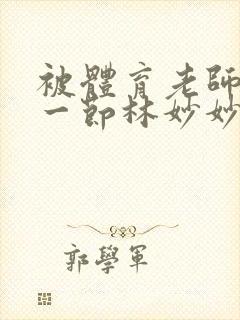 被體育老師
一節林妙妙
郭學軍